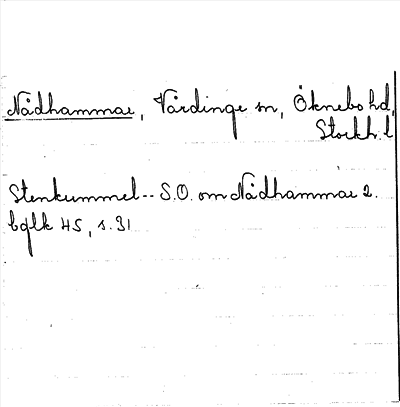 Nådhammar, Vårdinge sn, Öknebo hd,
Stockh. l
Stenkummel-- S.O. om Nådhammar 2.
bqlk 45, s. 31